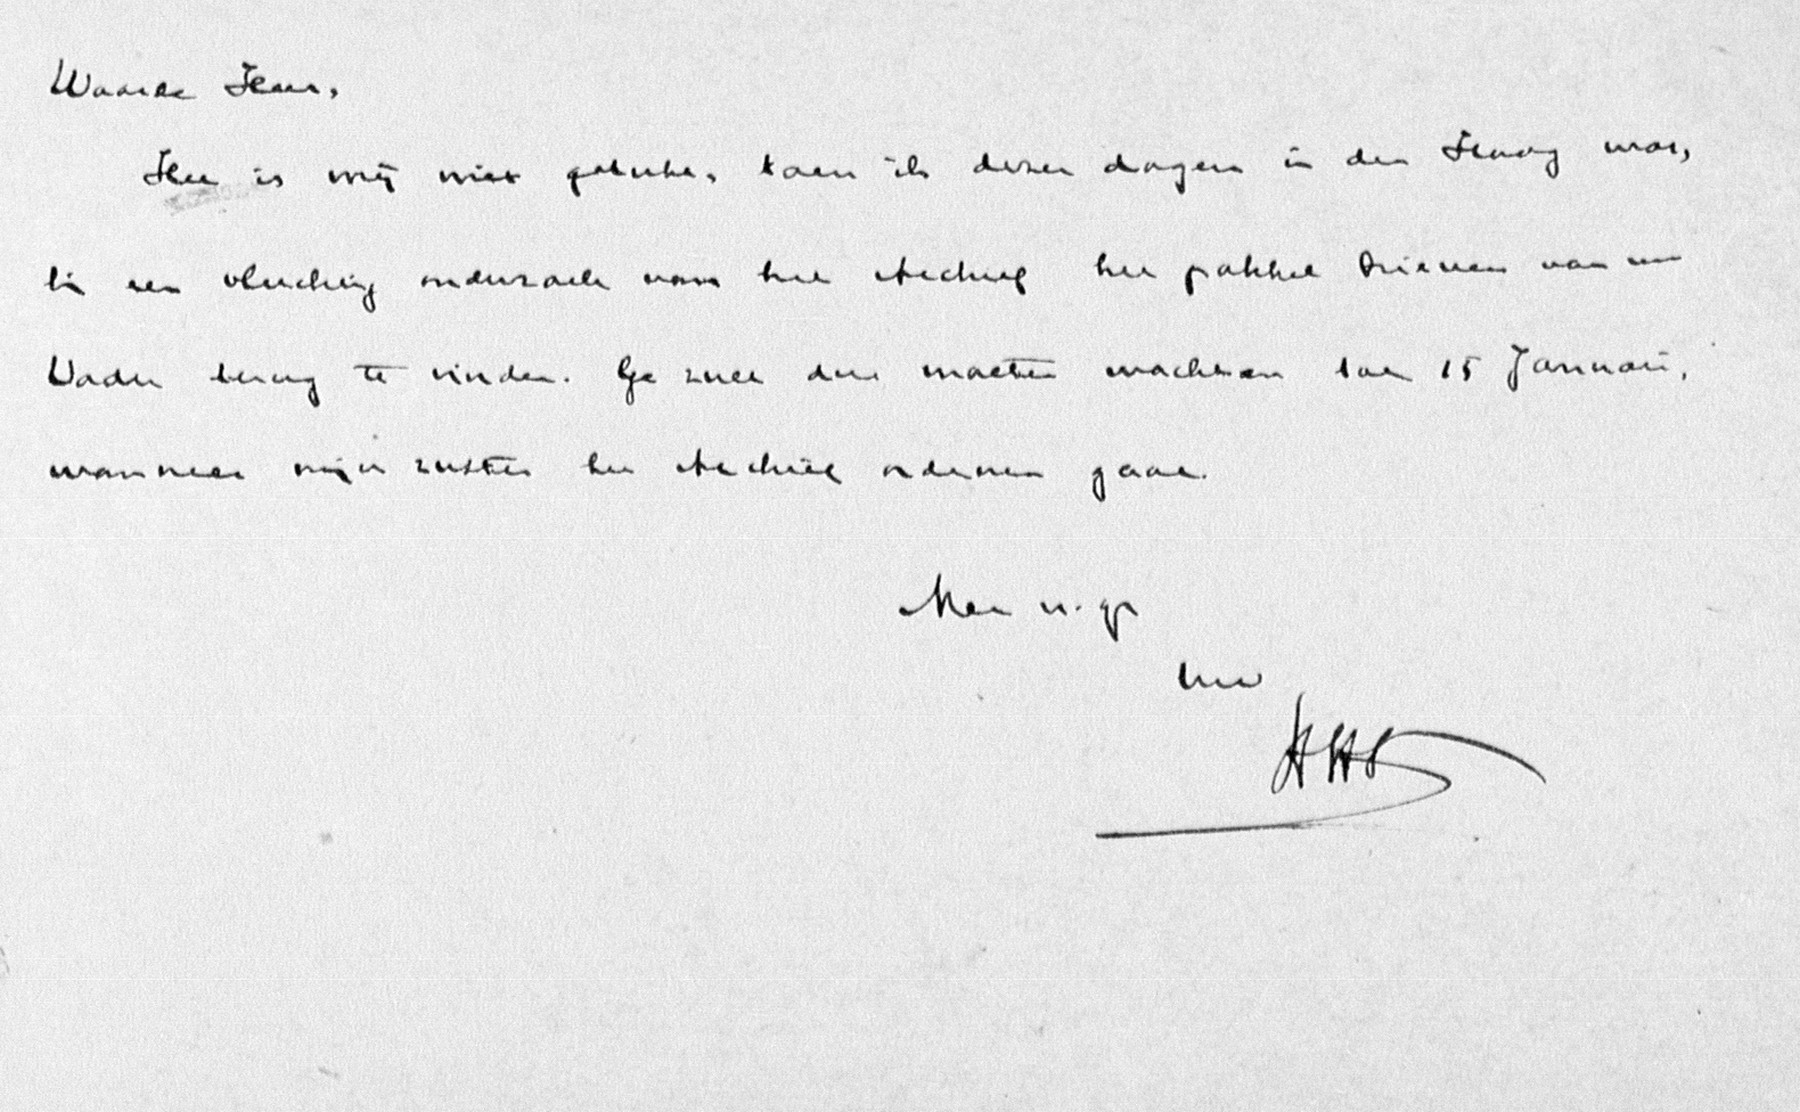 Waarde Heer,
Het is mij niet gelukt, toen ik dezer dagen in den Haag was,
bij een vluchtig onderzoek van het Archief het pakket brieven van uw
Vader terug te vinden. Ge zult dus moeten wachten tot 15 Januari,
wanneer mijn zuster het Archief ordenen gaat.
Met v. gr
Uw